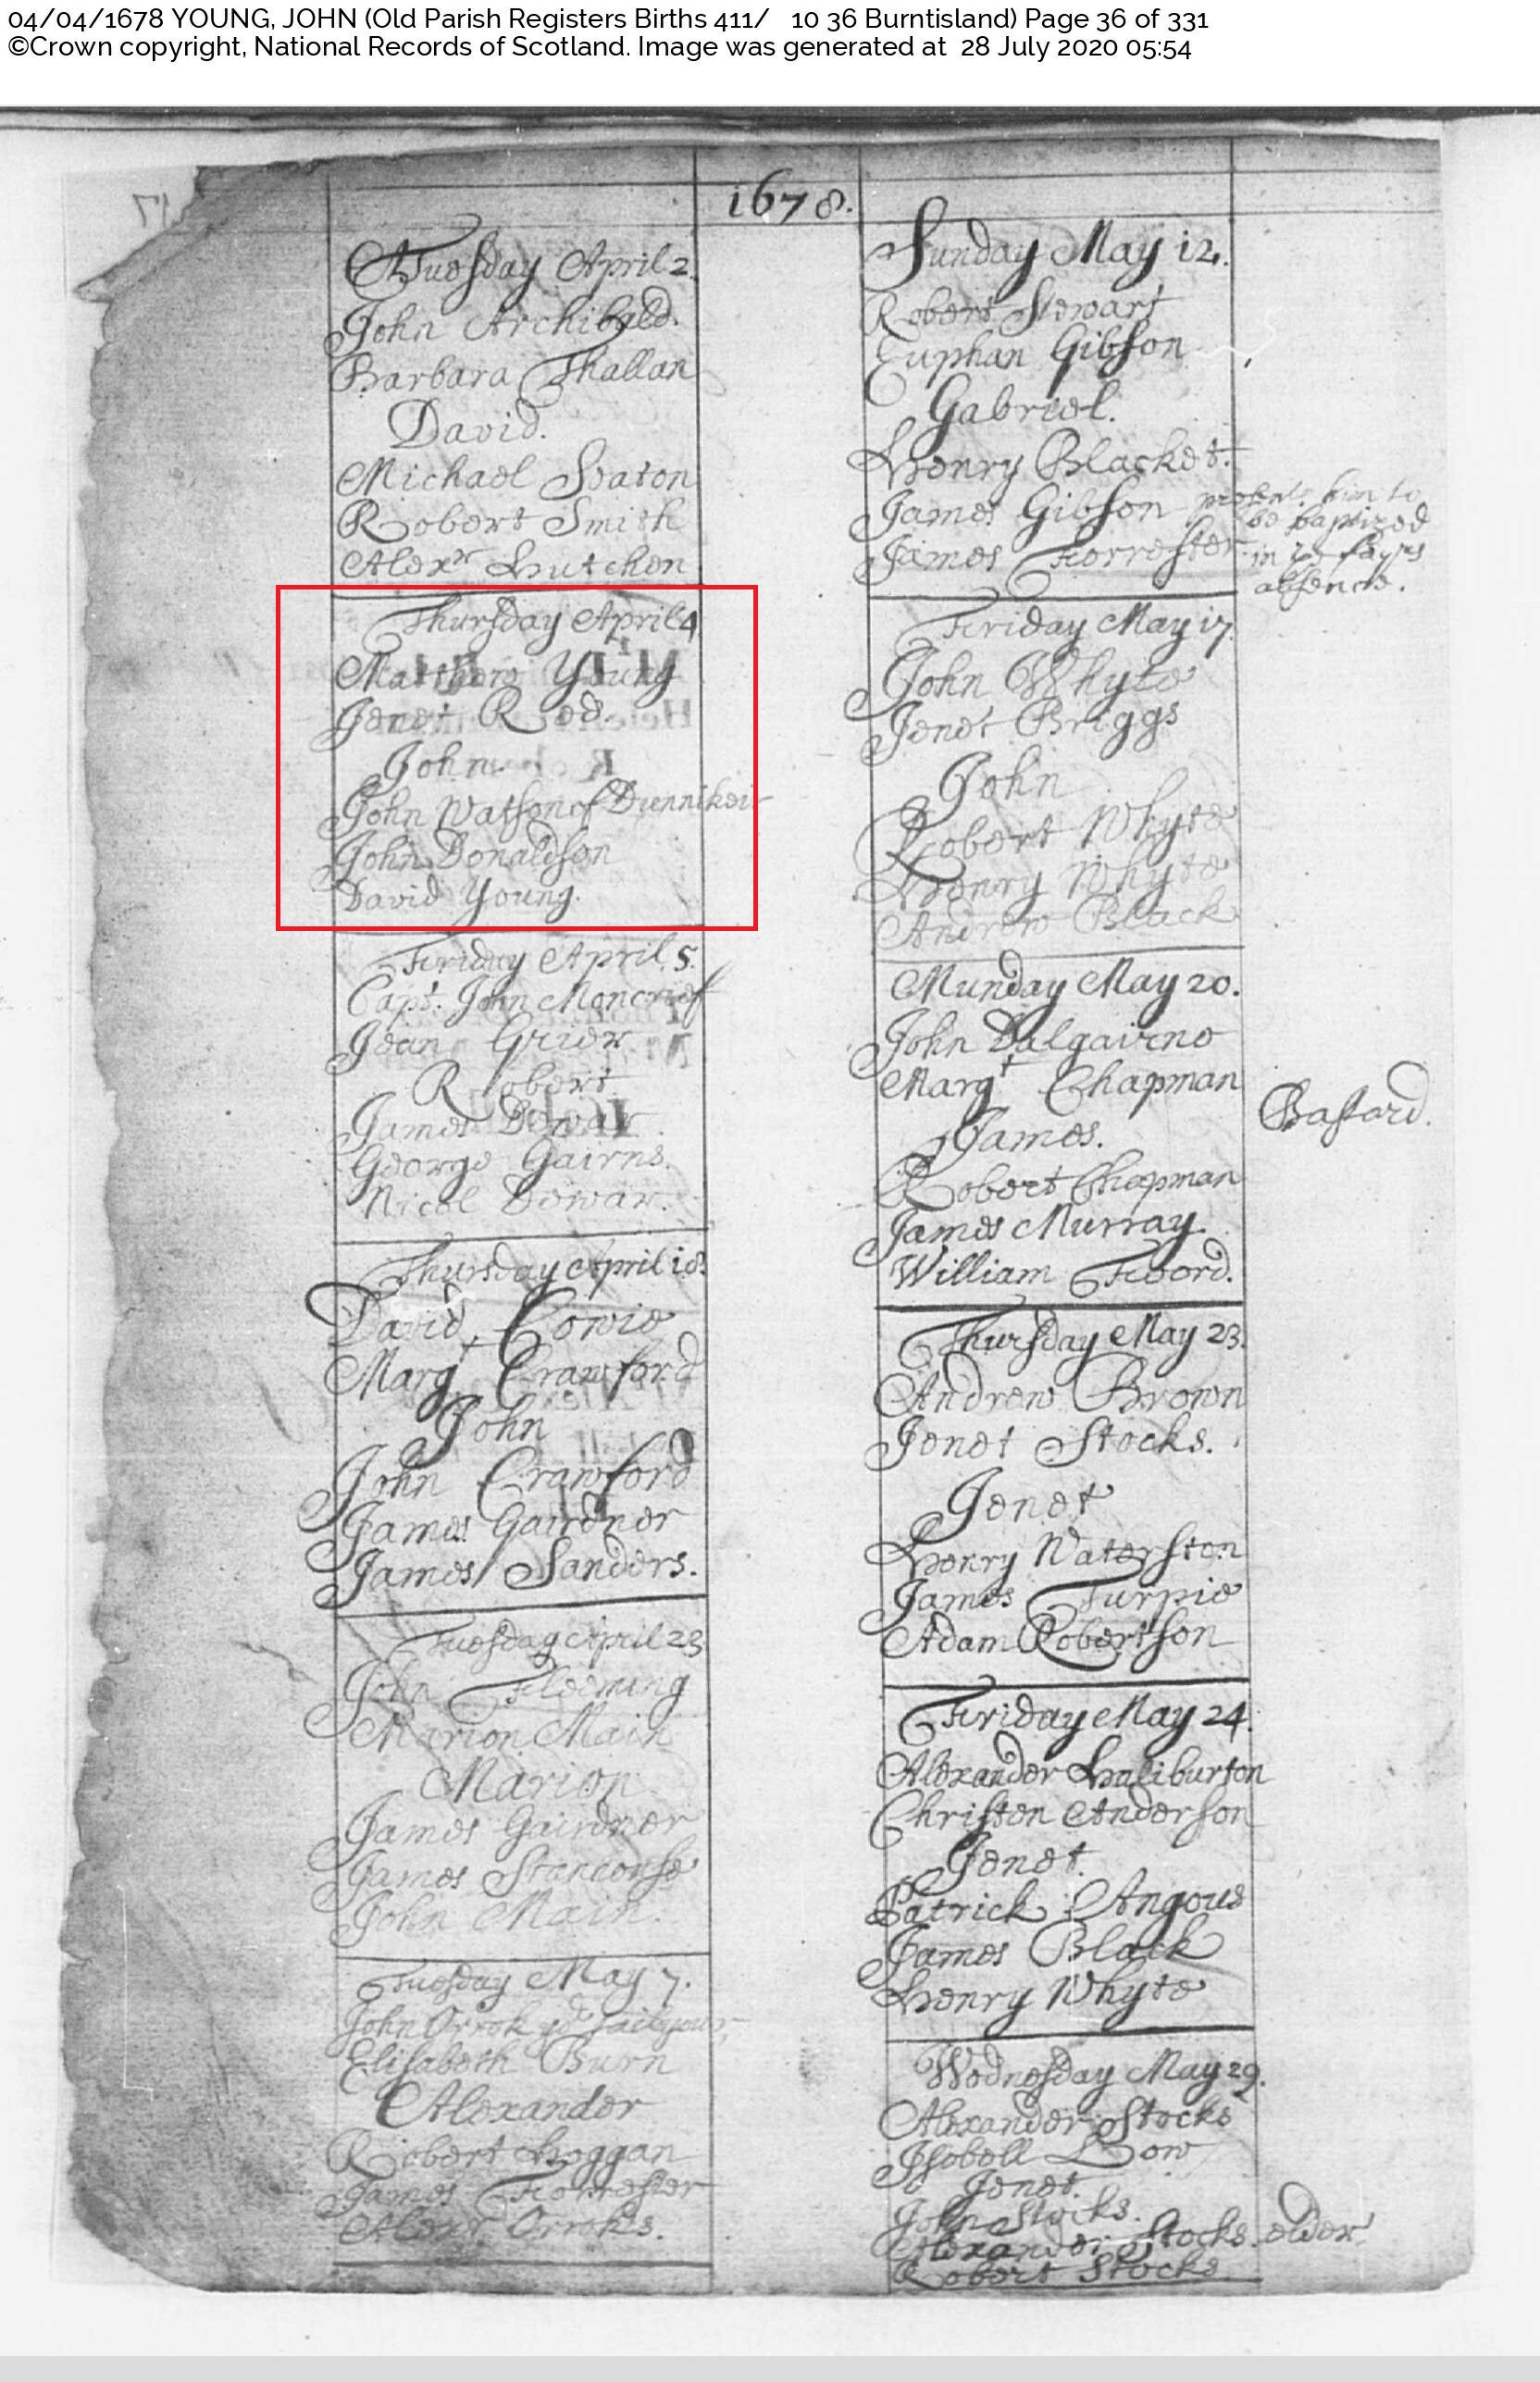 04/04/1678 YOUNG, JOHN (Old Parish Registers Births 411/ 10 36 Burntisland) Page 36 of 331
©Crown copyright, National Records of Scotland. Image was generated at 28 July 2020 05:54
1678.
Tuesday April 2.
John Archibald.
Barbara Thallan
David.
Michael Seaton
Robert Smith
Alexr Hutchen
Thursday April 4
Matthew Young
Jenet Reed.
John
John Watson of Dunnikeir
John Donaldson
David Young.
Friday April 5.
Capt. John Moncrief
Jean Grier
Robert
James Dewar
George Gairns.
Nicol Dewar.
Thursday April 18.
David Cowie
Margt Crawford
John
John Crawford
James Gairdner
James Sanders.
Tuesday April 23
John Fleeming
Marion Main
Marion
James Gairdner
James Stanehouse
John Main.
Tuesday May 7.
John Orrok
Elisabeth Burn
Alexander
Robert Hoggan
James Forrester
Alexr Orroks.
Sunday May 12.
Robert Stewart
Euphan Gibson
Gabriel.
Henry Blacket.
James Gibson
James Forrester
him to
be baptized
in
absence.
Friday May 17
John Whyte
Jenet Briggs
John
Robert Whyte
Henry Whyte
Andrew Black
Munday May 20.
John Dalgairno
Margt Chapman
Bastard.
James.
Robert Chapman
James Murray.
William Foord.
Thursday May 23.
Andrew Brown
Jenet Stocks.
Jenet
Henry Waterston
James Turpie
Adam Robertson
Friday May 24.
Alexander Haliburton
Christen Anderson
Jenet.
Patrick Angous
James Black
Henry Whyte
Wednesday May 29.
Alexander Stocks
Isobell Low
Jenet.
John Stocks.
Alexander Stocks elder
Robert Stocks